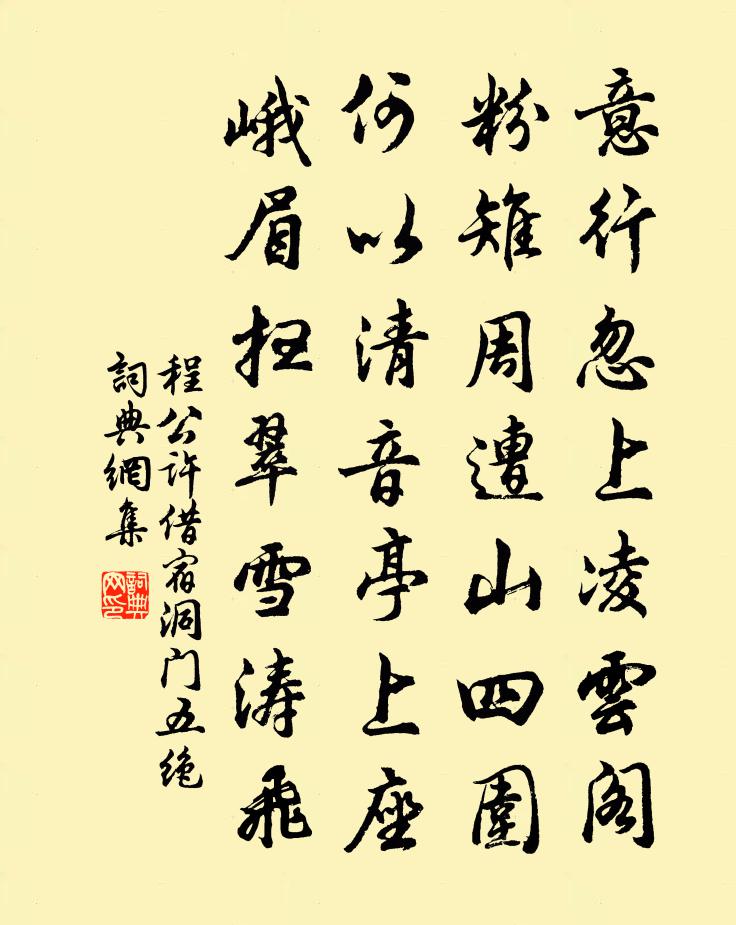 意行忽上凌雲阁
粉雉周遭山四圍
何以清音亭上座
峨眉扫翠雪涛飛
程公许借宿洞门五绝
詞典網集
詞典网印